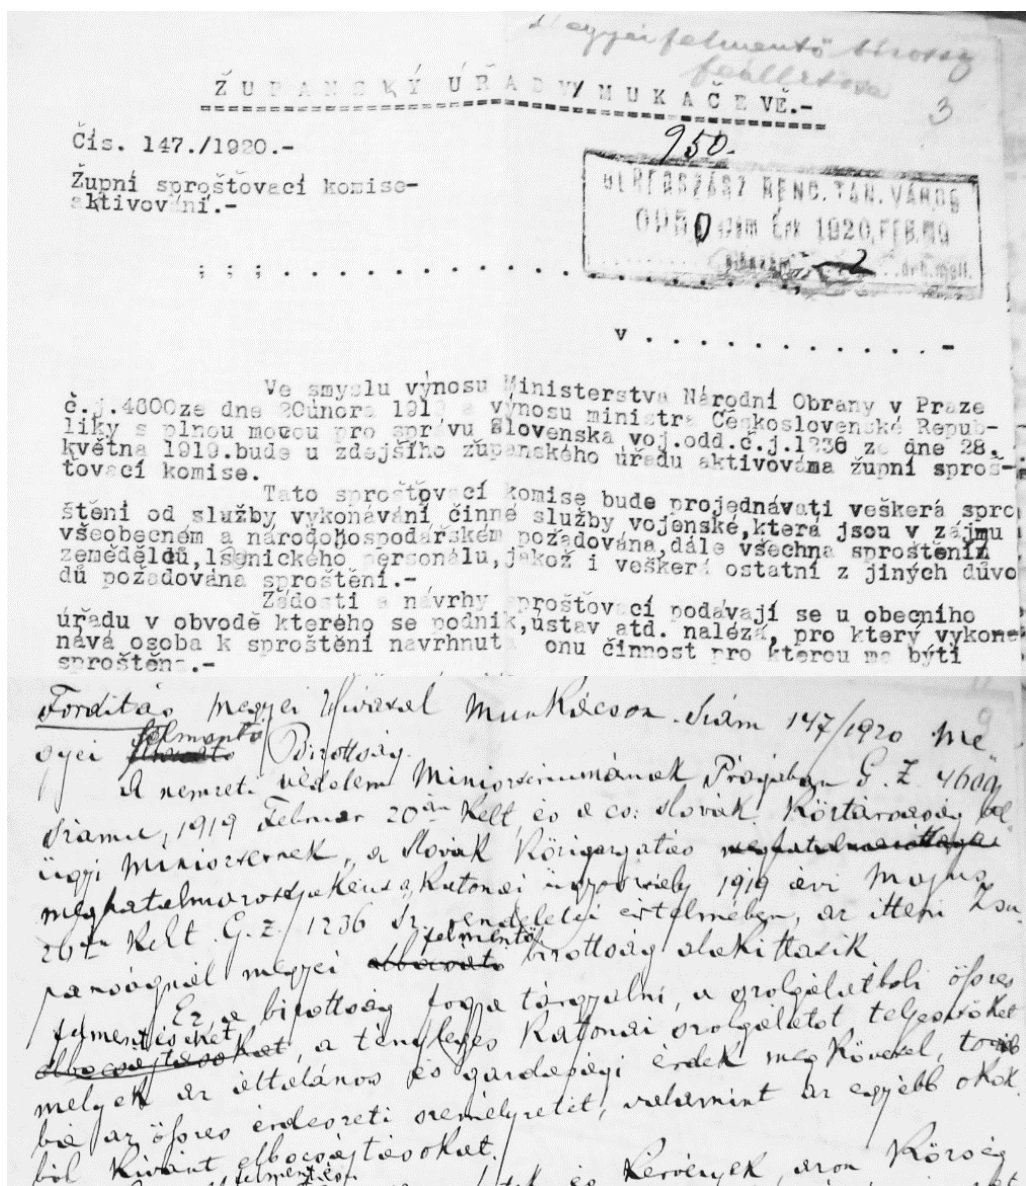 Megyei felmentő bizottság
felállítása
3
ŽUPANSKÝ ÚŘAD V MUKAČEVĚ.-
Čís. 147./1920.-
950.-
Župní sprošťovací komise-
aktivování.-
BEREGSZÁSZ REND. TAN. VÁROS
0950 szám Érk 1920. FEB.
2 drb. mell.
; ; ; . . . . . . . . . . . . . . . . . . . . . .
v . . . . . . . . . . . . -
Ve smyslu výnosu Ministerstva Národní Obrany v Praze
č.j.4600ze dne 20února 1919 a výnosu ministra Československé Repub-
liky s plnou mocou pro správu Slovenska voj.odd.č.j.1236 ze dne 28.
května 1919.bude u zdejšího županského úřadu aktivována župní sproš-
ťovací komise.
Tato sprošťovací komise bude projednávati veškerá spro
štěni od služby vykonávání činné služby vojenské,která jsou v zájmu
všeobecném a národohospodářském požadována,dále všechna sproštění
zemědělců,lesnického personálu,jakož i veškerá ostatní z jiných důvo
dů požadována sproštění.-
Žádosti a návrhy sprošťovací podávají se u obecního
úřadu v obvodě kterého se podnik,ústav atd. nalézá, pro který vykoná
nává osoba k sproštění navrhnutá onu činnost pro kterou má býti
sproštěna.-
Forditás Megyei Hivatal Munkácson. Szám 147/1920 Me
gyei felmentő Bizottság.
A nemzeti védelem Miniszteriumának Prágában G. Z. 4600
számu, 1919 Februar 20án kelt, és a cs: slovák Köztársaság bel
ügyi Miniszternek, a slovák Közigazgatás meghatalmazottjának
meghatalmazottjakénts a, Katonai ügyosztály 1919 évi Majus
28án kelt G. Z. 1236 sz. rendeletei értelmében, az itteni Zsu
pánságnál megyei felmentő bizottság alakittasik
Ez a bizottság fogja tárgyalni, a szolgálatboli összes
felmentéseket
elbocsájtásokat, a tényleges Katonai szolgálatot teljesitőket
melyek az általános és gazdasági érdek meg Követel, továb
bá az összes erdészeti személyzetét, valamint az egyébb okok
ból Kivánt elbocsájtásokat.
felmentési
és Kérvények, azon Község